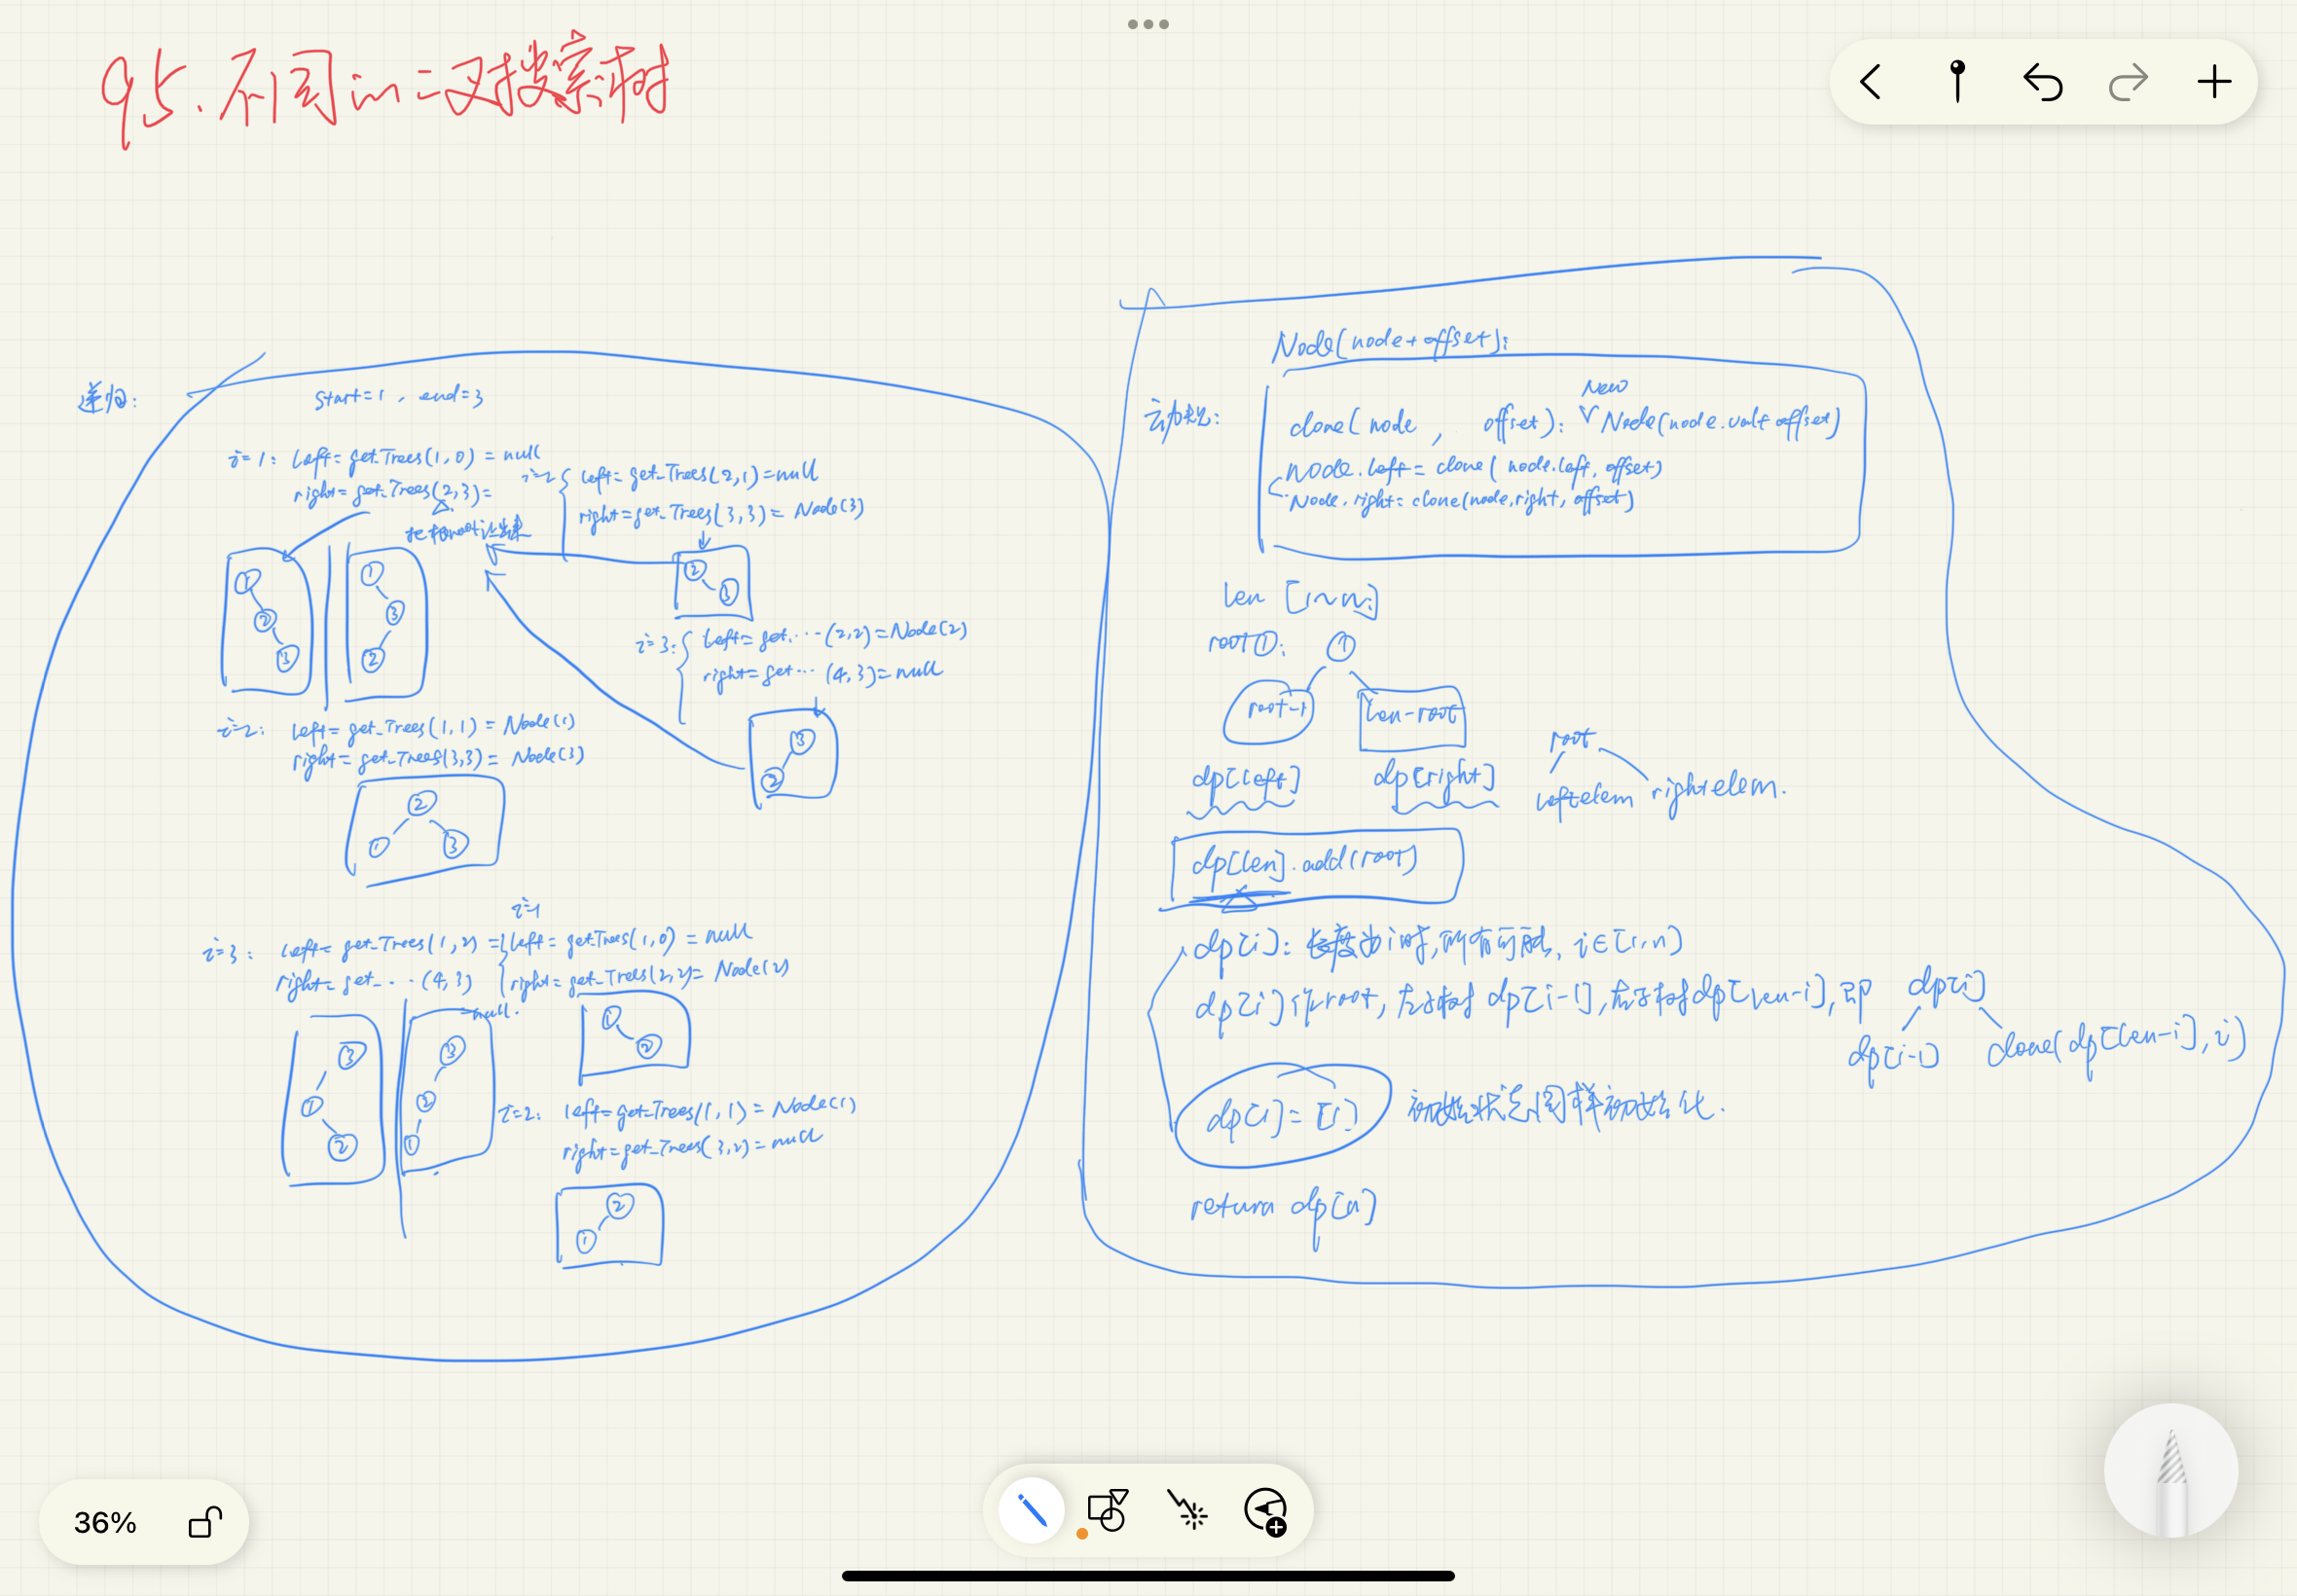 95.不同的二叉搜索树
递归:
start=1 , end=3
i=1: left=get_Trees(1,0)=null
right=get_Trees(2,3)=
i=2 left=get_Trees(2,1)=null
right=get_Trees(3,3)=Node(3)
① ② ③
① ③ ②
② ③
i=3: left=get...(2,2)=Node(2)
right=get...(4,3)=null
③ ②
i=2: left=get_Trees(1,1)=Node(1)
right=get_Trees(3,3)=Node(3)
② ① ③
i=3: left=get_Trees(1,2)=
right=get_...(4,3)
=null.
i=1
left=get_Trees(1,0)=null
right=get_Trees(2,2)=Node(2)
① ②
③ ① ②
③ ② ①
i=2: left=get_Trees(1,1)=Node(1)
right=get_Trees(3,2)=null
② ①
Node(node+offset):
动规:
clone(node , offset): New Node(node.val+offset)
Node.left=clone(node.left, offset)
Node.right=clone(node.right, offset)
len [1~n]
root①: ①
root-1 len-root
dp[left] dp[right]
root
leftelem rightelem.
dp[len].add(root)
dp[i]: 长度为i时,所有可能, i∈[1,n]
dp[i]作root,左子树 dp[i-1],右子树dp[len-i],即
dp[i]
dp[i-1] clone(dp[len-i],i)
dp[i]=[] 初始状态同样初始化.
return dp[n]
36%